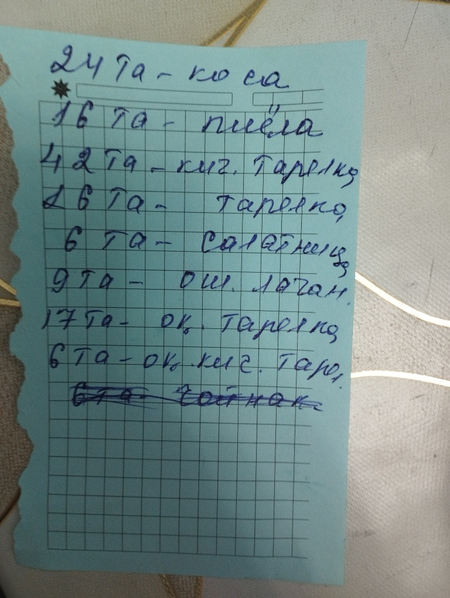 24 та - коса
16 та - пиёла
42 та - кич. тарелка
26 та - тарелка
6 та - салатница
9 та - ош. лаган.
17 та - оқ. тарелка
6 та - оқ. кич. таре.
6 та - чойнак